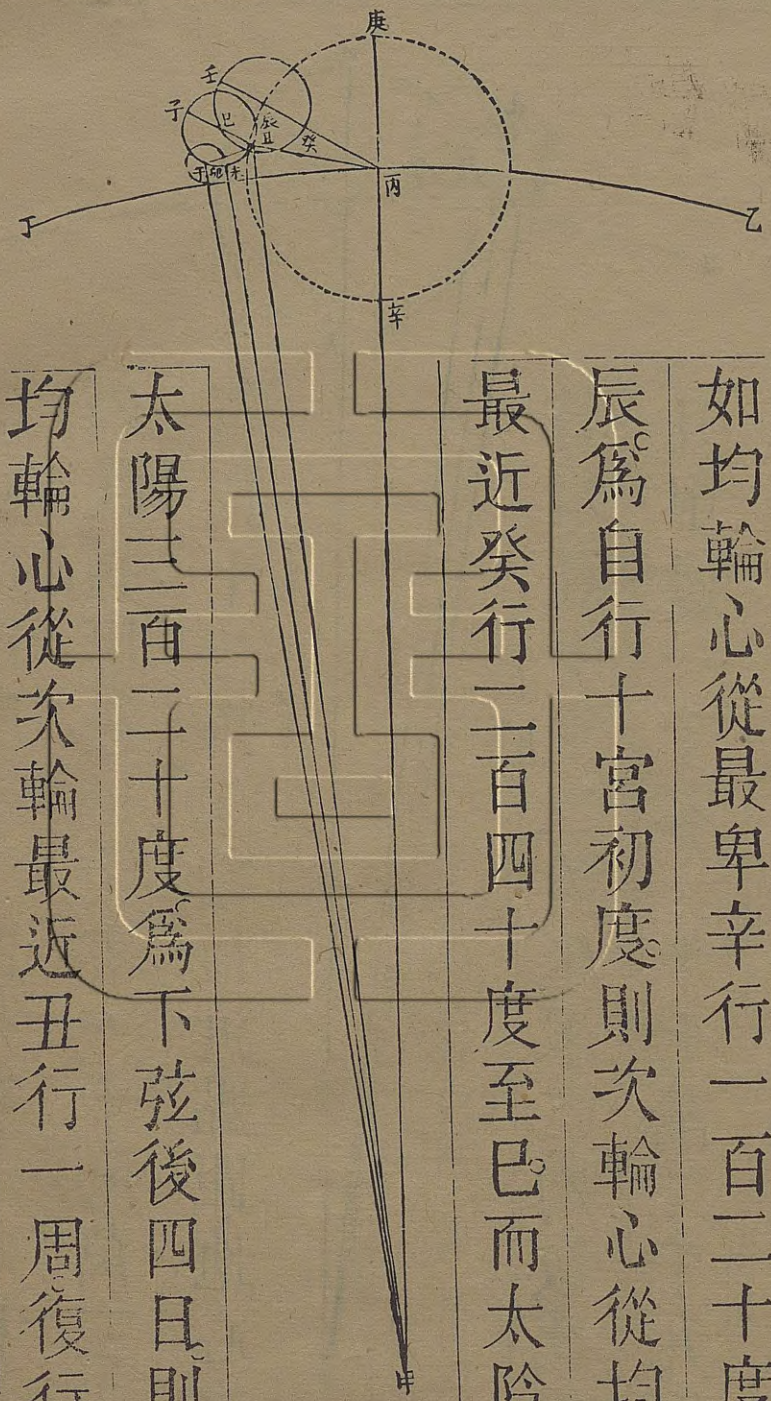 庚
壬
子
巳
辰
丑
癸
丙
丁
乙
辛
甲
如均輪心從最卑辛行一百二十度
辰爲自行十宮初度則次輪心從均
最近癸行二百四十度至巳而太陰
太陽三百二十度爲下弦後四日則
均輪心從次輪最近丑行一周復行